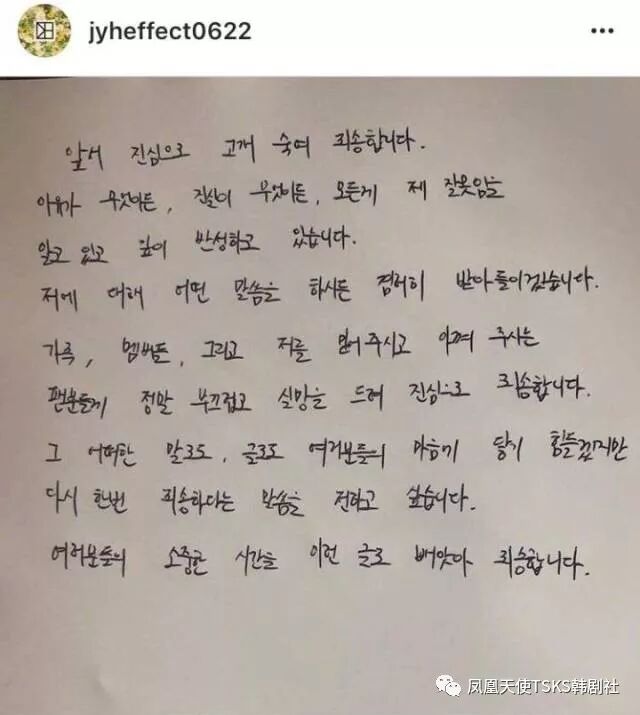 jyheffect0622
앞서 진심으로 고개 숙여 죄송합니다.
이유가 무엇이든, 진실이 무엇이든, 모든게 제 잘못임을
알고 있고 깊이 반성하고 있습니다.
저에 대해 어떤 말씀을 하시든 겸허히 받아들이겠습니다.
가족, 멤버들, 그리고 저를 믿어주시고 아껴 주시는
팬분들께 정말 부끄럽고 실망을 드려 진심으로 죄송합니다.
그 어떠한 말로도, 글로도 여러분들의 마음에 닿기 힘들겠지만
다시 한번 죄송하다는 말씀을 전하고 싶습니다.
여러분들의 소중한 시간을 이런 글로 빼앗아 죄송합니다.
凤凰天使TSKS韩剧社